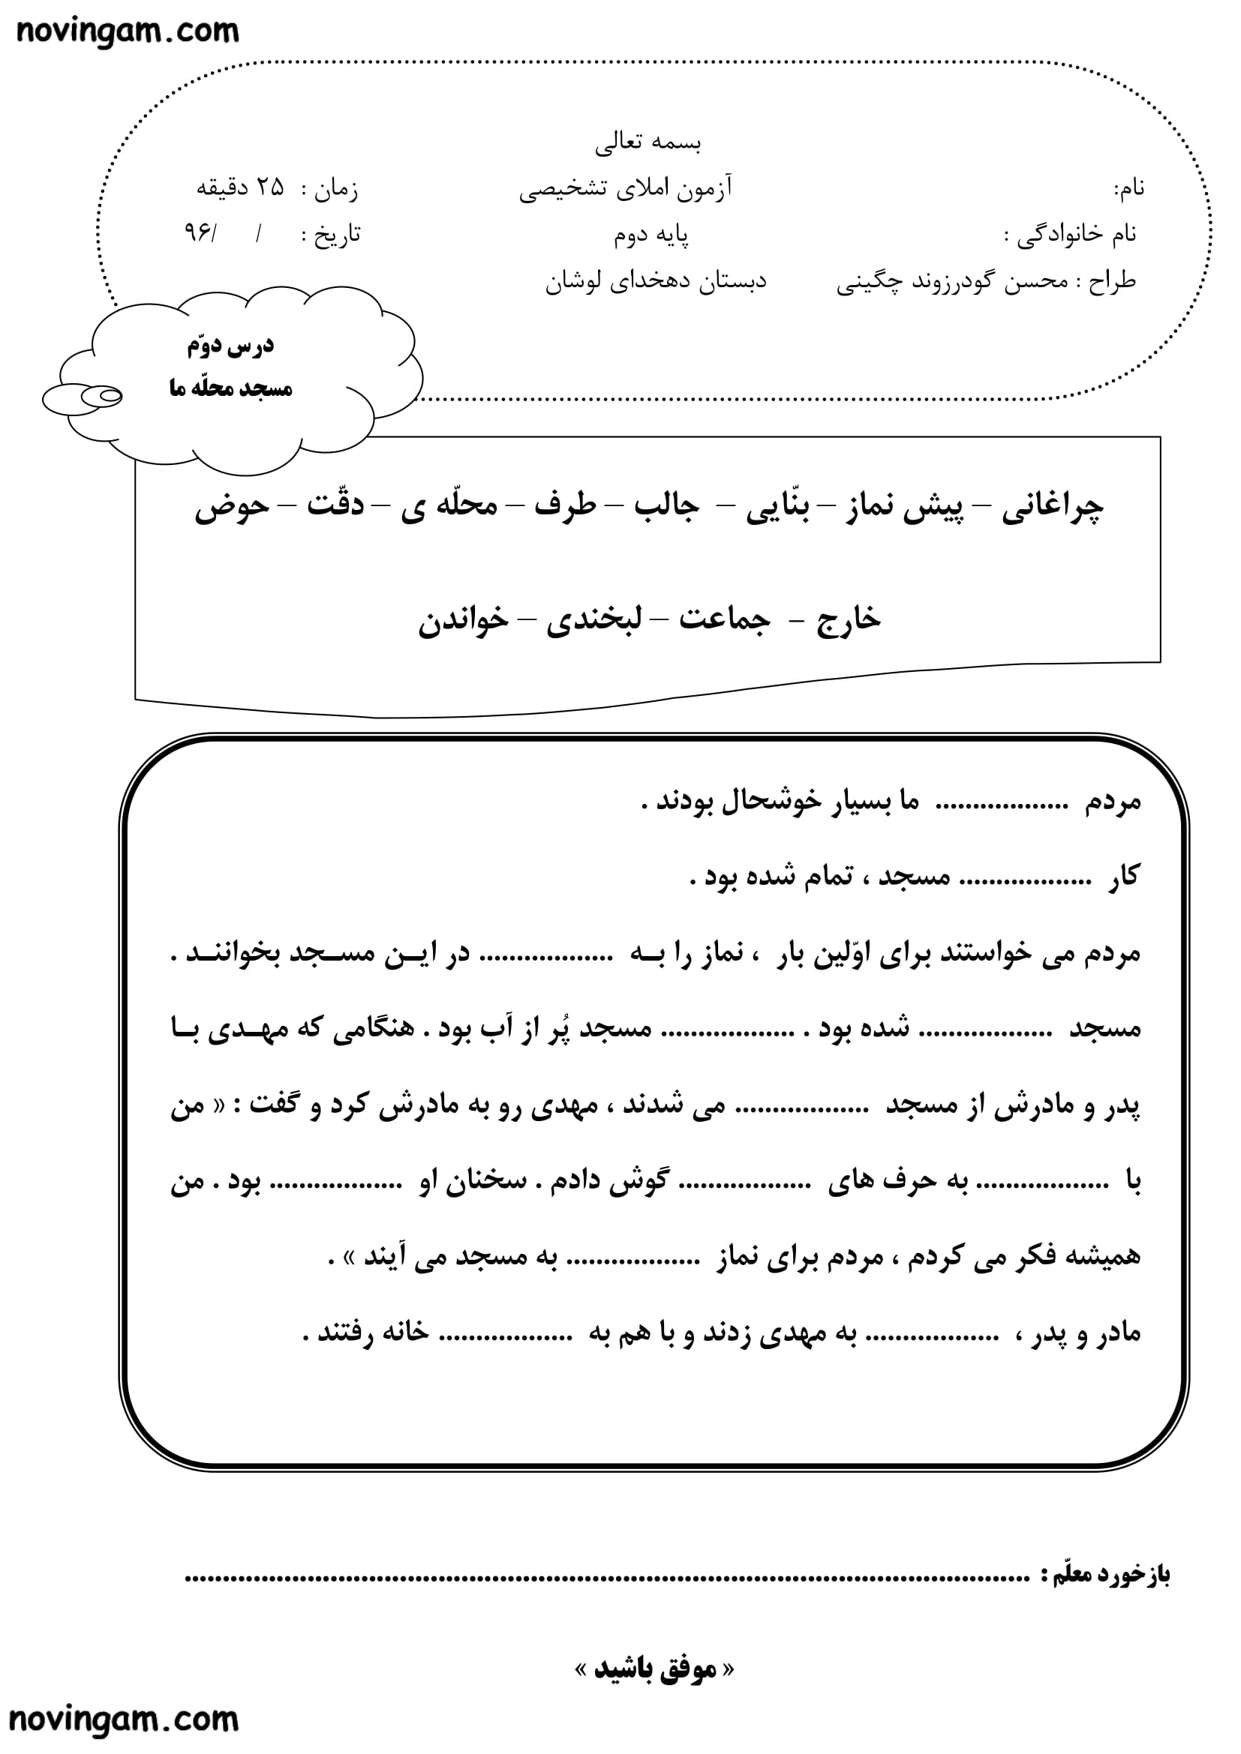 novingam.com
بسمه تعالی
نام: آزمون املای تشخیصی زمان : ۲۵ دقیقه
نام خانوادگی : پایه دوم تاریخ : / /۹۶
طراح : محسن گودرزوند چگینی دبستان دهخدای لوشان
درس دوّم
مسجد محلّه ما
چراغانی – پیش نماز – بنّایی – جالب – طرف – محلّه ی – دقّت – حوض
خارج - جماعت – لبخندی – خواندن
مردم .................. ما بسیار خوشحال بودند .
کار .................. مسجد ، تمام شده بود .
مردم می خواستند برای اوّلین بار ، نماز را بـه .................. در ایـن مسـجد بخواننـد .
مسجد .................. شده بود . .................. مسجد پُر از آب بود . هنگامی که مهـدی بـا
پدر و مادرش از مسجد .................. می شدند ، مهدی رو به مادرش کرد و گفت : « من
با .................. به حرف های .................. گوش دادم . سخنان او .................. بود . من
همیشه فکر می کردم ، مردم برای نماز .................. به مسجد می آیند » .
مادر و پدر ، .................. به مهدی زدند و با هم به .................. خانه رفتند .
بازخورد معلّم : ................................................................................................................
« موفق باشید »
novingam.com